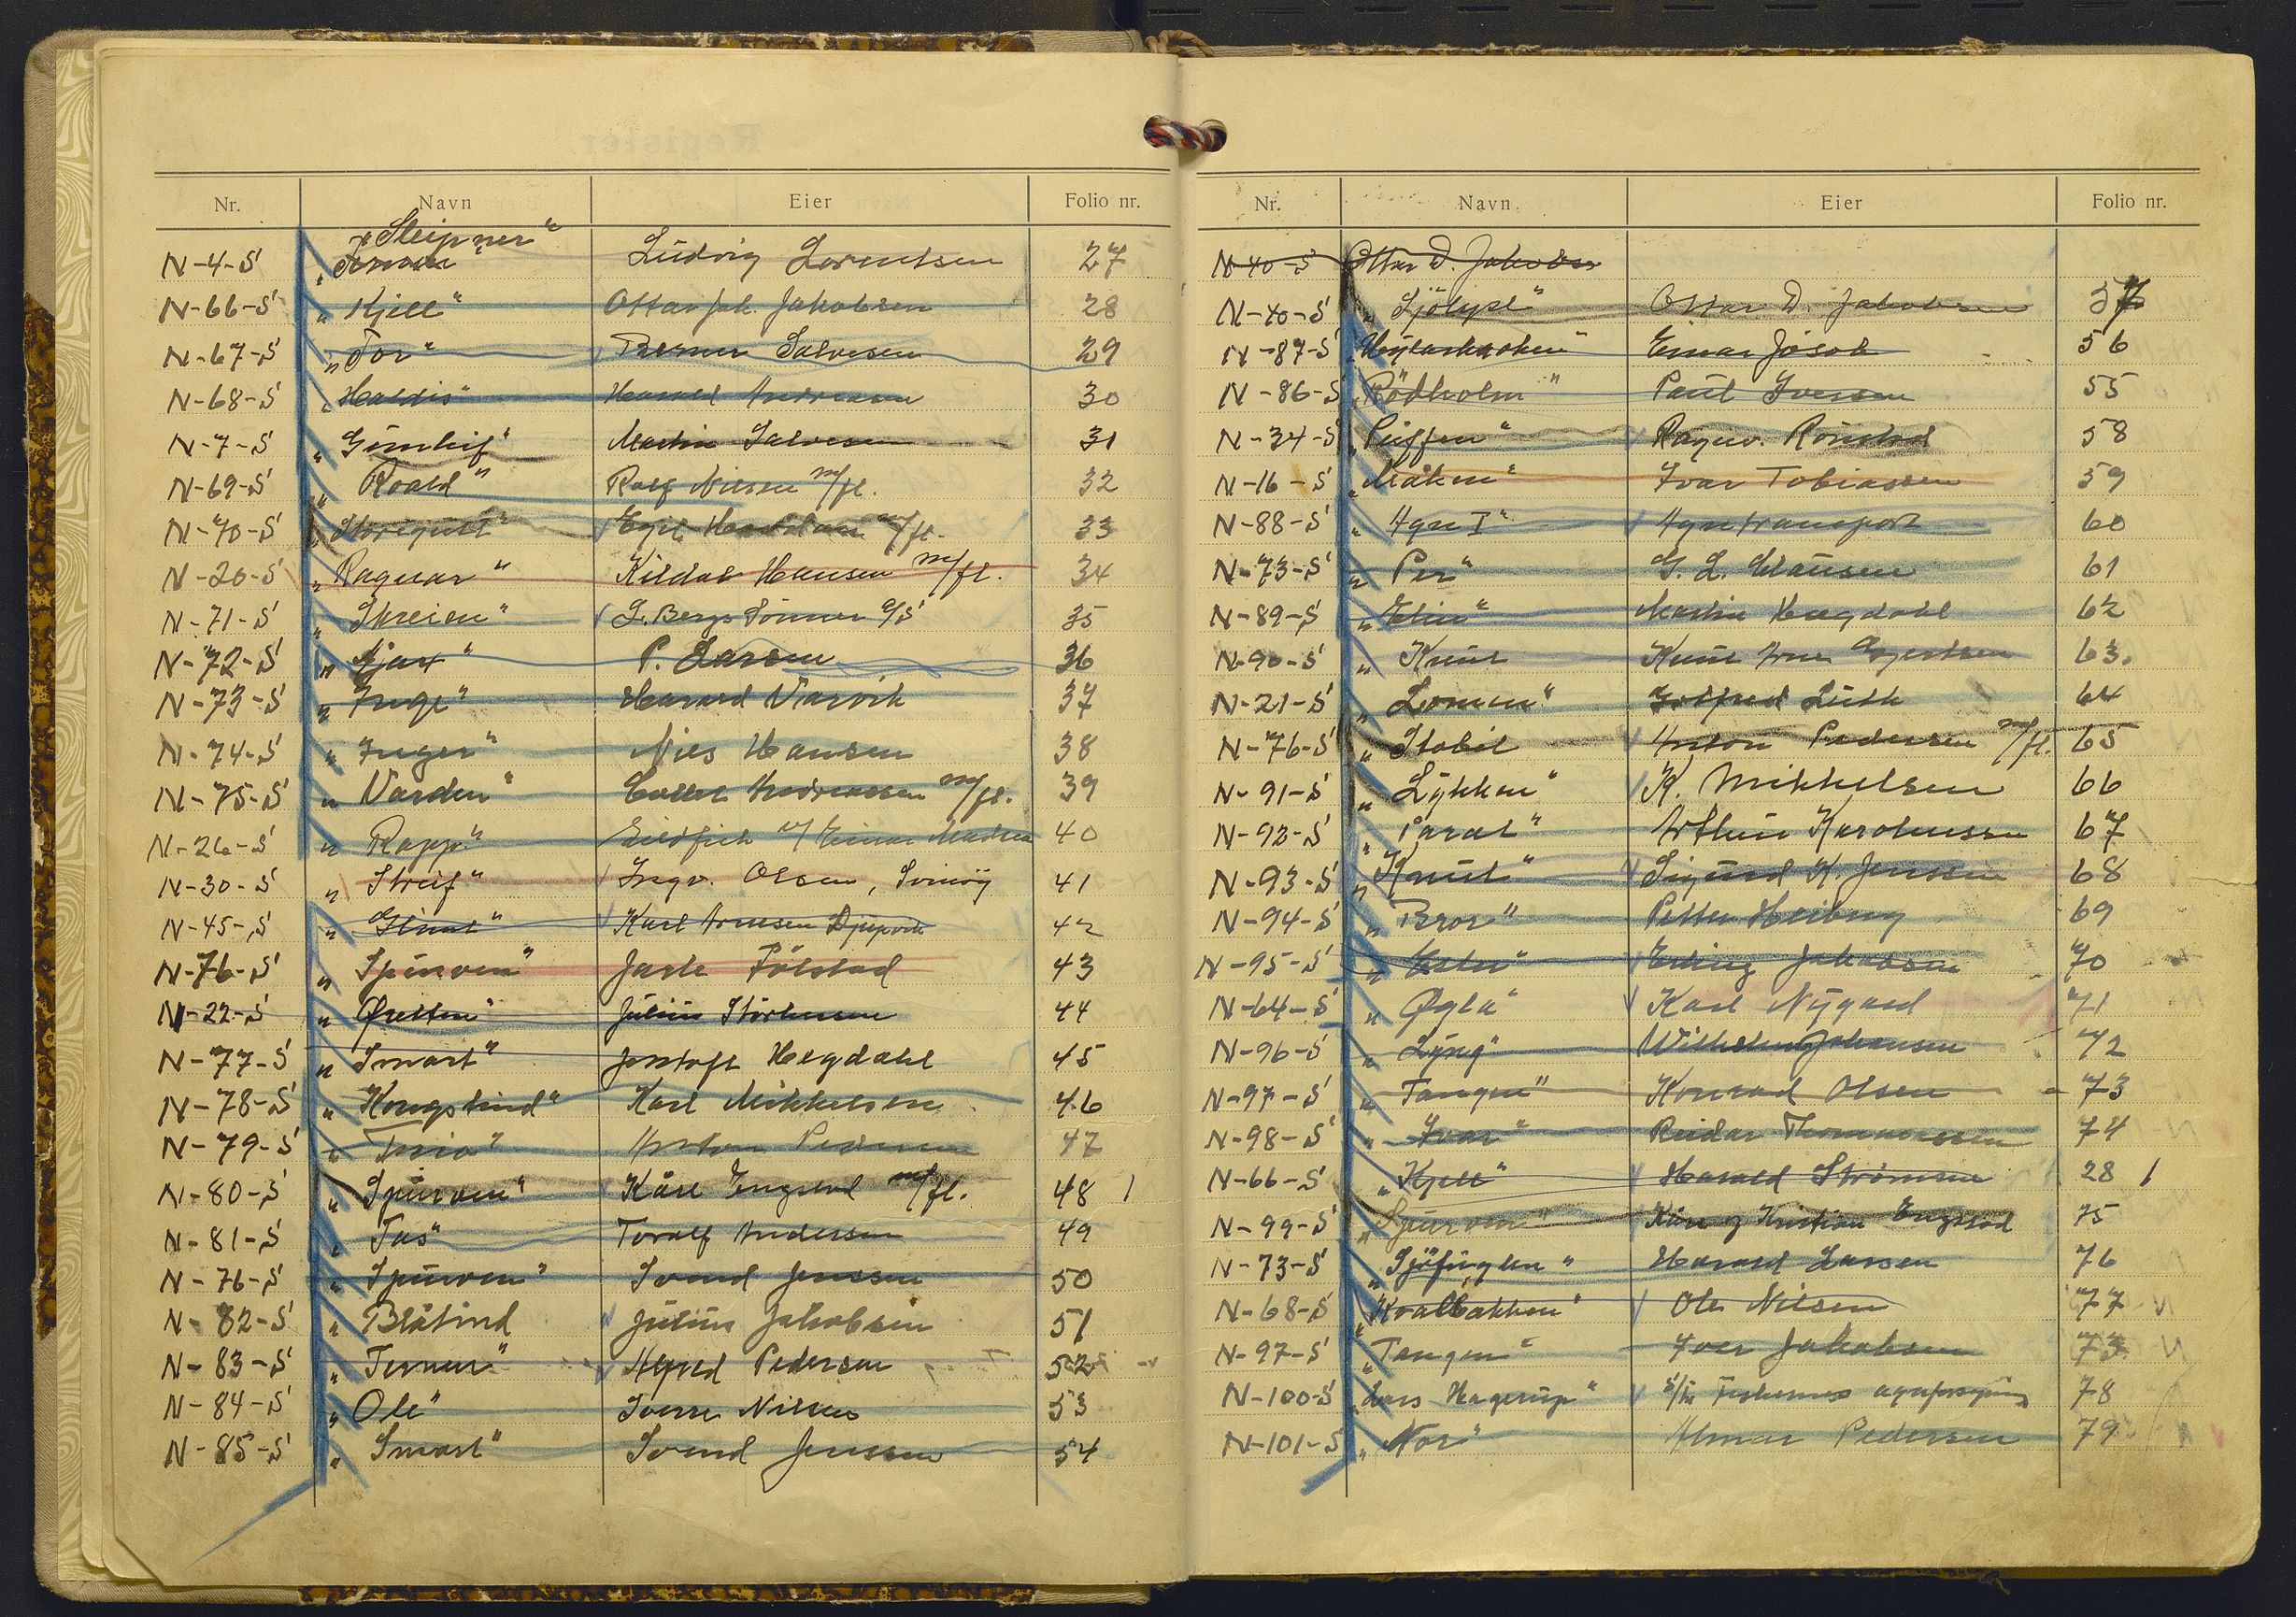 Nr. Navn Eier Folio nr.
"Sleipner"
N-4-S Ludvig Lorentsen 27
N-66-S "Kjell" Ottar Joh. Jakobsen 28
N-67-S "Tor" Berner Salvesen 29
N-68-S "Haldis" Harald Andreasen 30
N-7-S Martin Salvesen 31
N-69-S "Roald" Rolf Nilsen m/fl. 32
N-70-S m/fl. 33
N-20-S "Ragnar" Kildal Hansen m/fl. 34
N-71-S "Skreien" L. Bergs Sönner A/S 35
N-72-S "Ajax" P. Larsen 36
N-73-S "Inge" Harard Narvik 37
N-74-S "Inger" Nils Hansen 38
N-75-S "Varden" Andreassen m/fl. 39
N-26-S "Rapp" Einar Madsen 40
N-30-S "Streif" Ingv. Olsen, Svinöy 41
N-45-S "Glimt" Karl Arntsen Djupvik 42
N-76-S "Spurven" Jarle Fölstad 43
N-22-S "Örretten" Julius 44
N-77-S "Smart" Hegdahl 45
N-78-S "Kongstind" Karl Mikkelsen 46
N-79-S "Trio" Anton Pedersen 47
N-80-S "Spurven" Kåre Engsrod m/fl. 48 1
N-81-S "Tas" Toralf Andersen 49
N-76-S "Spurven" Svend Jenssen 50
N-82-S "Blåtind Julius Jakobsen 51
N-83-S "Ternen" Alfred Pedersen 52
N-84-S "Ole" Sverre Nilsen 53
N-85-S "Smart" Svend Jenssen 54
Nr. Navn Eier Folio nr.
N-40-S Ottar D. Jakobsen
N-40-S "Sjölyst" Ottar D. Jakobsen 37
N-87-S Einar Josok 56
N-86-S "Rödholm" Paul Iversen 55
N-34-S "Puffen" Ragnv. Rönstad 58
N-16-S "Måken" Ivar Tobiassen 59
N-88-S "Agn I" Agntransport 60
N-73-S "Per" G. L. Claussen 61
N-89-S "Elin" Martin Hegdahl 62
N-90-S "Knut Knut Arne Gjertsen 63.
N-21-S "Lommen" Luth 64
N-76-S "Stabil Anton Pedersen m/fl. 65
N-91-S "Lykken" K. Mikkelsen 66
N-92-S "Parat" Arthur Karoliussen 67
N-93-S "Knut" Sigurd K. Jenssen 68
N-94-S "Bror" Petter Heiberg 69
N-95-S "Ester" Erling Jakobsen 70
N-64-S "Øgla" Karl Nygård 71
N-96-S "Lyng" Wilhelm Johansen 72
N-97-S "Tangen" Konrad Olsen 73
N-98-S "Ivar" Reidar Thommessen 74
N-66-S "Kjell" Harald Strömsen 28 1
N-99-S "Spurven" Kåre og Kristian Engsrod 75
N-73-S "Sjöfuglen" Harald Larsen 76
N-68-S "Kvalbakken" Ole Nilsen 77
N-97-S "Tangen" Iver Jakobsen 73
N-100-S "Lars Hagerup" S/L Fiskernes agnforsyning 78
N-101-S "Nor" Almar Pedersen 79